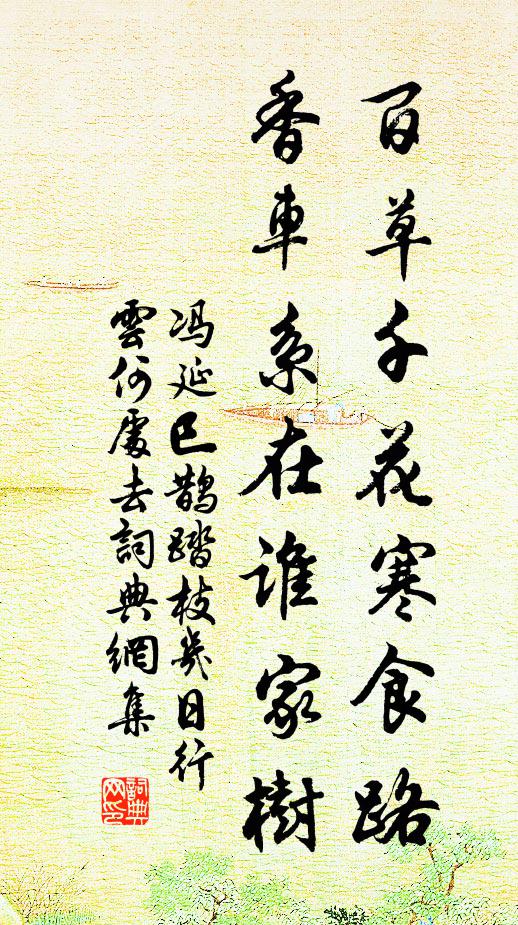 百草千花寒食路
香車系在誰家樹
冯延巳鹊踏枝几日行
雲何處去詞典網集
詞典網印